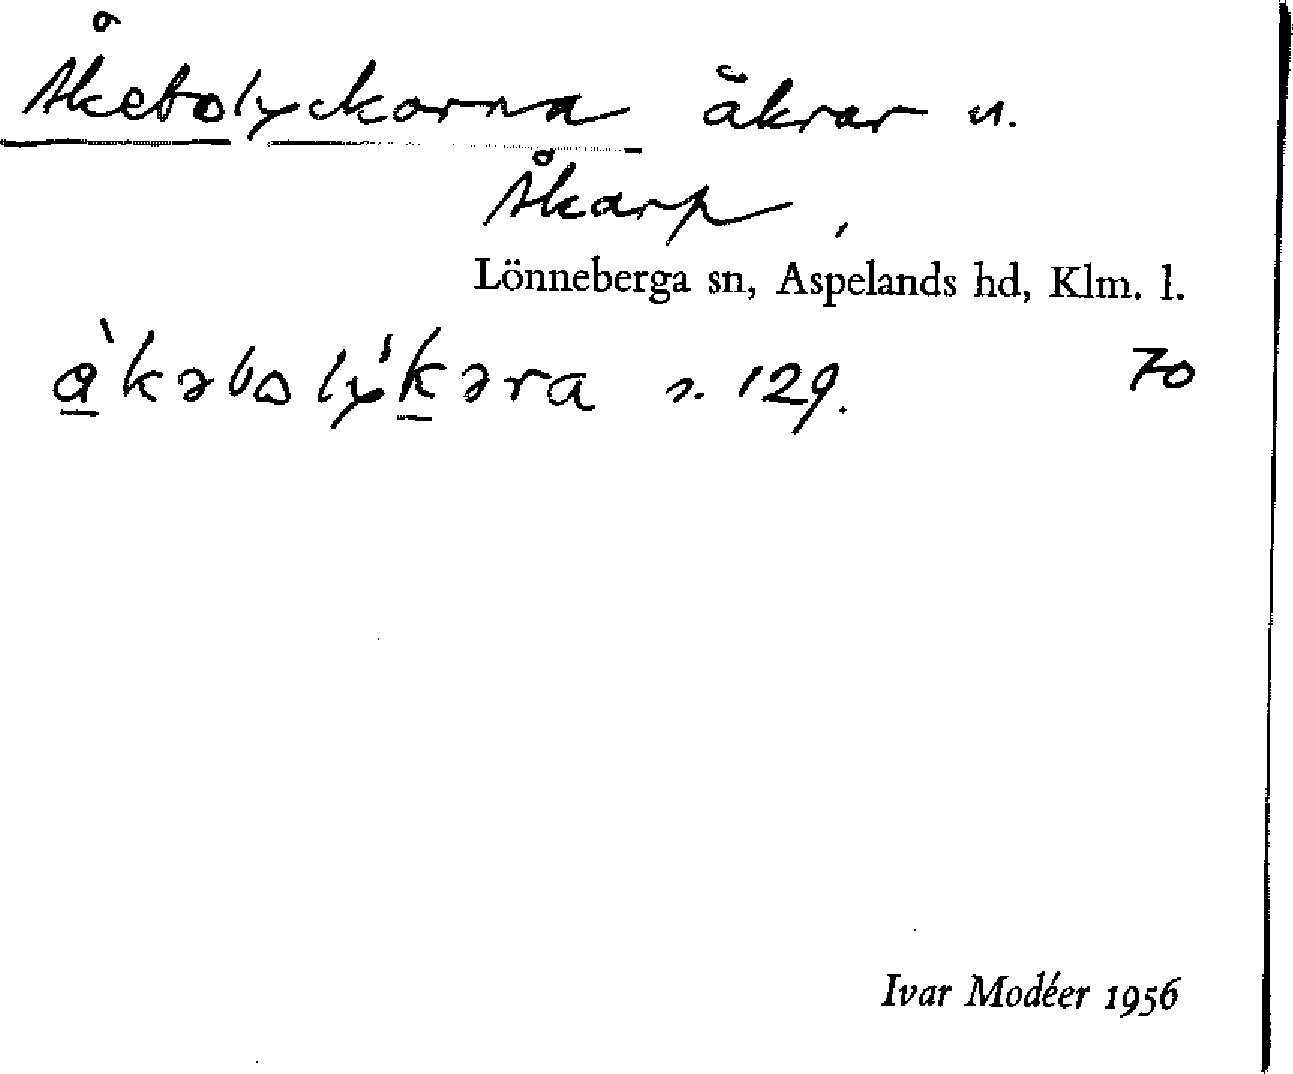 Åkebolyckorna åkrar u.
Åkarp,
Lönneberga sn, Aspelands hd, Klm. l.
å̱̀kəbolý̱kəra s. 129. 70
Ivar Modéer 1956